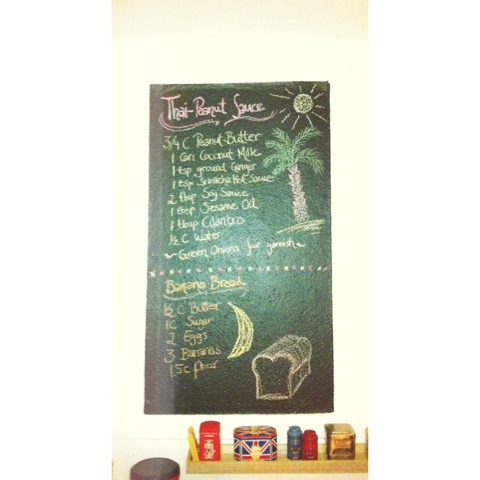 Thai-Peanut Sauce
3/4 C Peanut-Butter
1 Can Coconut Milk
1 tsp ground Ginger
1 tsp Sriracha Hot Sauce
2 tbsp Soy Sauce
1 tbsp Sesame Oil
1 tbsp Cilantro
1/2 C Water
~ Green Onions for garnish ~
Banana Bread
1/2 C Butter
1C Sugar
2 Eggs
3 Bananas
1.5c flour